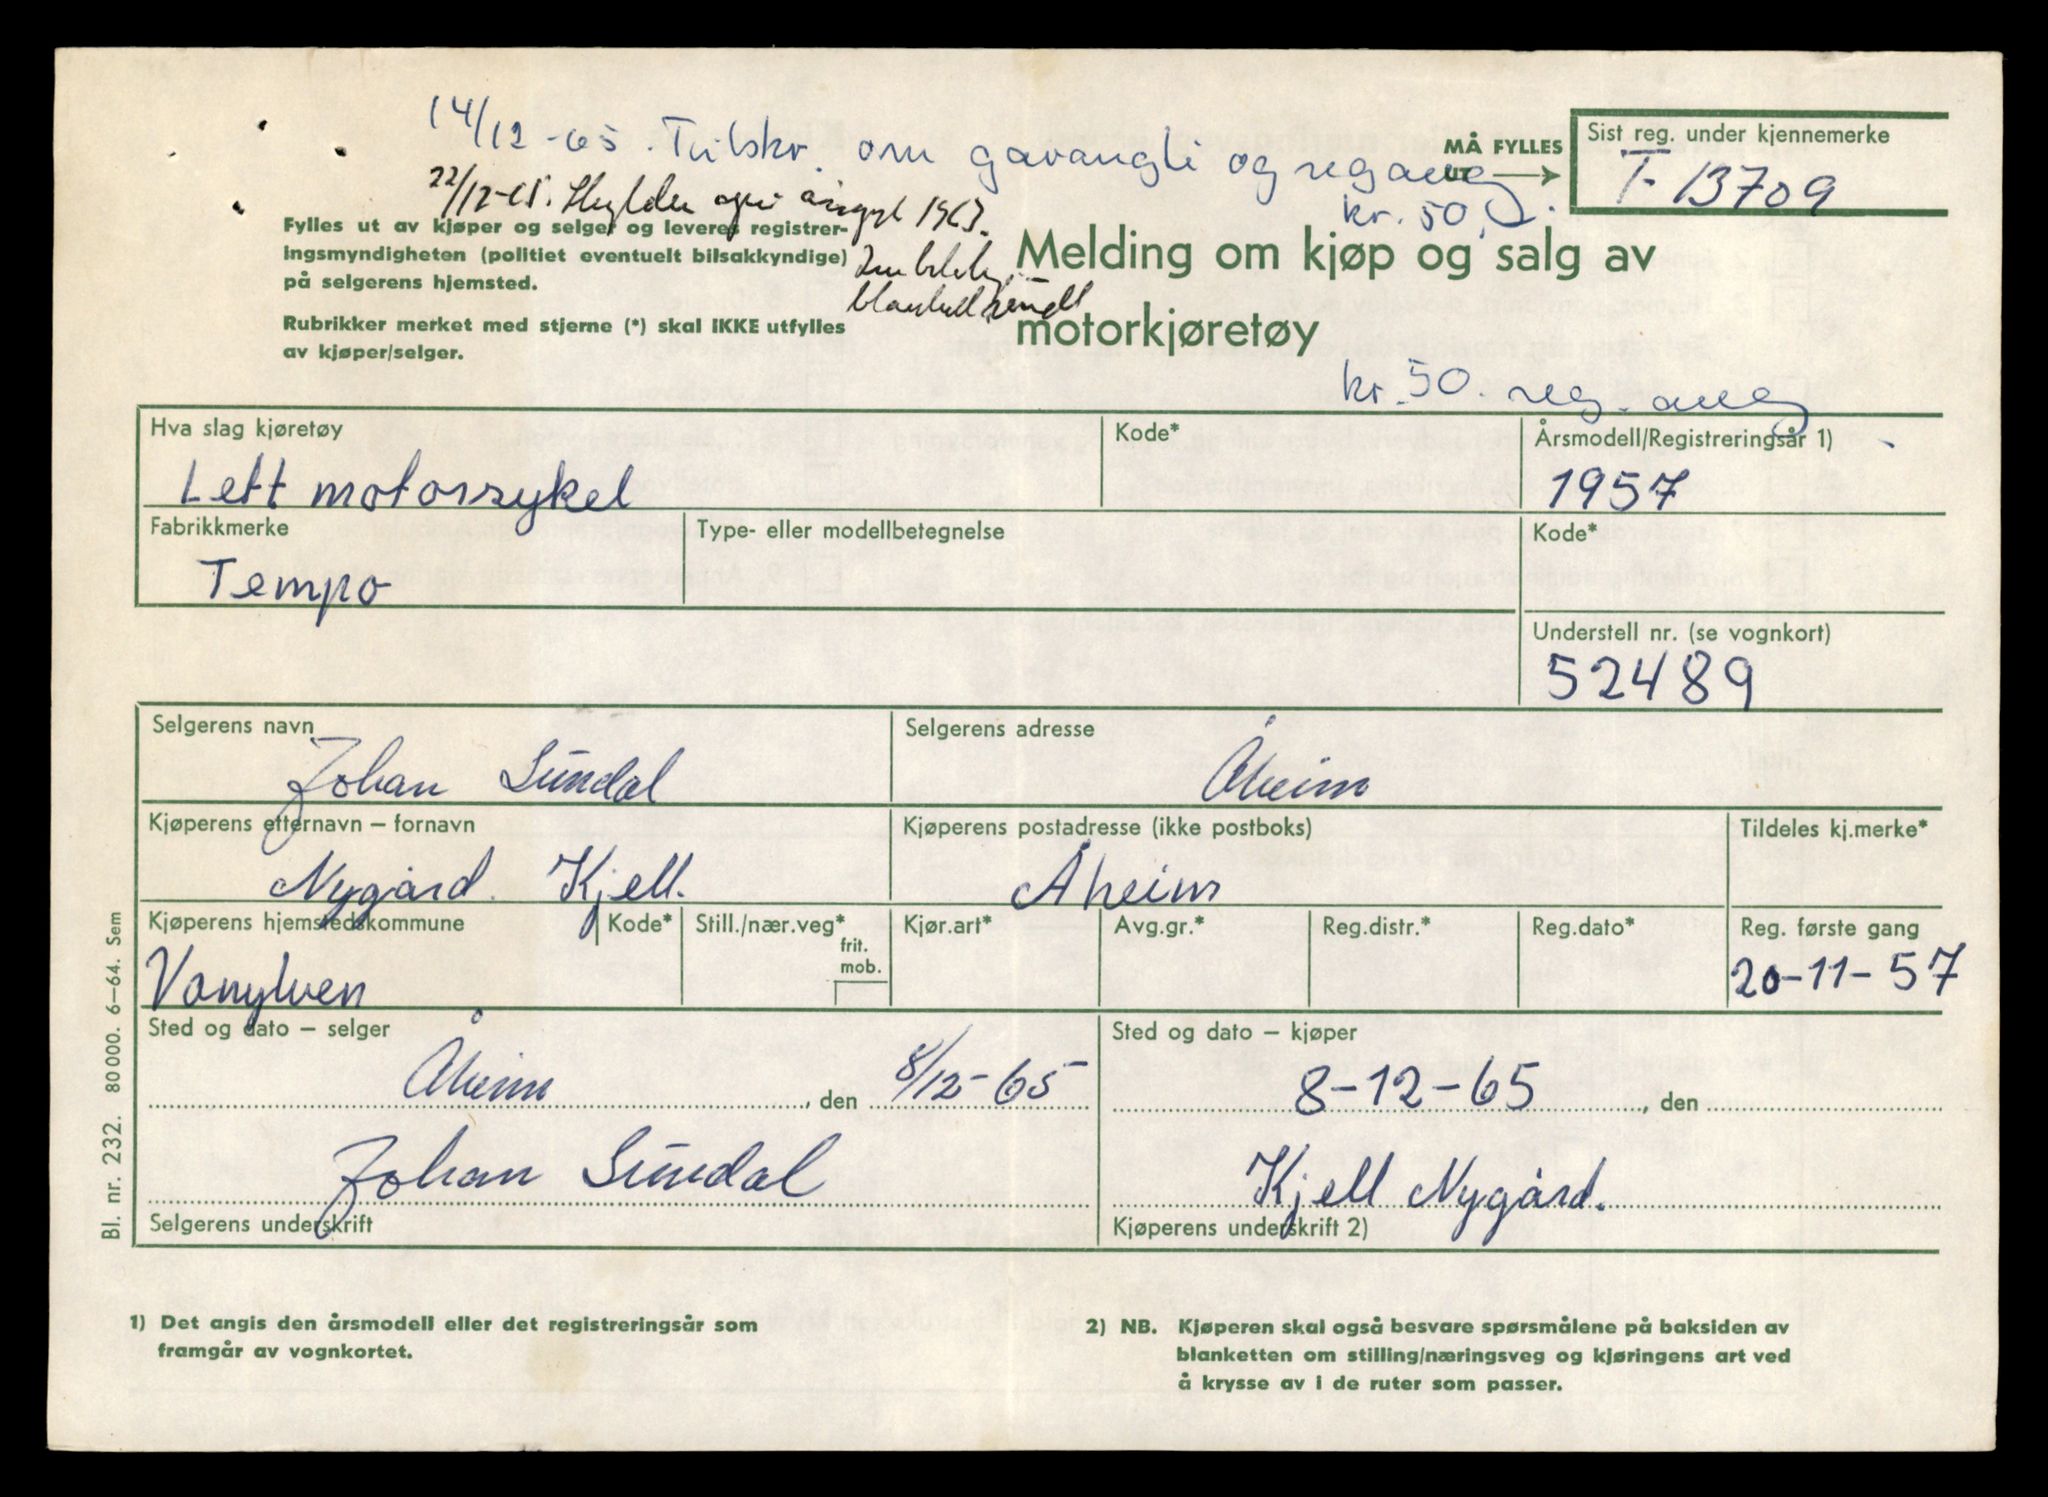 14/12-65. Tilskr. om gavangli og reg avg
kr. 50,-
22/12-65. 1963.
MÅ FYLLES
UT
Sist reg. under kjennemerke
T-13709
Fylles ut av kjøper og selger og leveres registrer-
ingsmyndigheten (politiet eventuelt bilsakkyndige)
på selgerens hjemsted.
Rubrikker merket med stjerne (*) skal IKKE utfylles
av kjøper/selger.
blankett sendt
Melding om kjøp og salg av
motorkjøretøy
kr. 50. reg. avg
Hva slag kjøretøy
Lett motorsykel
Kode*
Årsmodell/Registreringsår 1)
1957
Fabrikkmerke
Tempo
Type- eller modellbetegnelse
Kode*
Understell nr. (se vognkort)
52489
Selgerens navn
Johan Sundal
Selgerens adresse
Åheim
Kjøperens etternavn – fornavn
Nygård. Kjell.
Kjøperens postadresse (ikke postboks)
Åheim
Tildeles kj.merke*
Kjøperens hjemstedskommune
Vanylven
Kode*
Still./nær.veg*
frit.
mob.
Kjør.art*
Avg.gr.*
Reg.distr.*
Reg.dato*
Reg. første gang
20-11-57
Sted og dato – selger
Åheim, den 8/12-65
Sted og dato – kjøper
8-12-65, den
Johan Sundal
Selgerens underskrift
Kjell Nygård.
Kjøperens underskrift 2)
Bl. nr. 232. 80000. 6–64. Sem
1) Det angis den årsmodell eller det registreringsår som
framgår av vognkortet.
2) NB. Kjøperen skal også besvare spørsmålene på baksiden av
blanketten om stilling/næringsveg og kjøringens art ved
å krysse av i de ruter som passer.